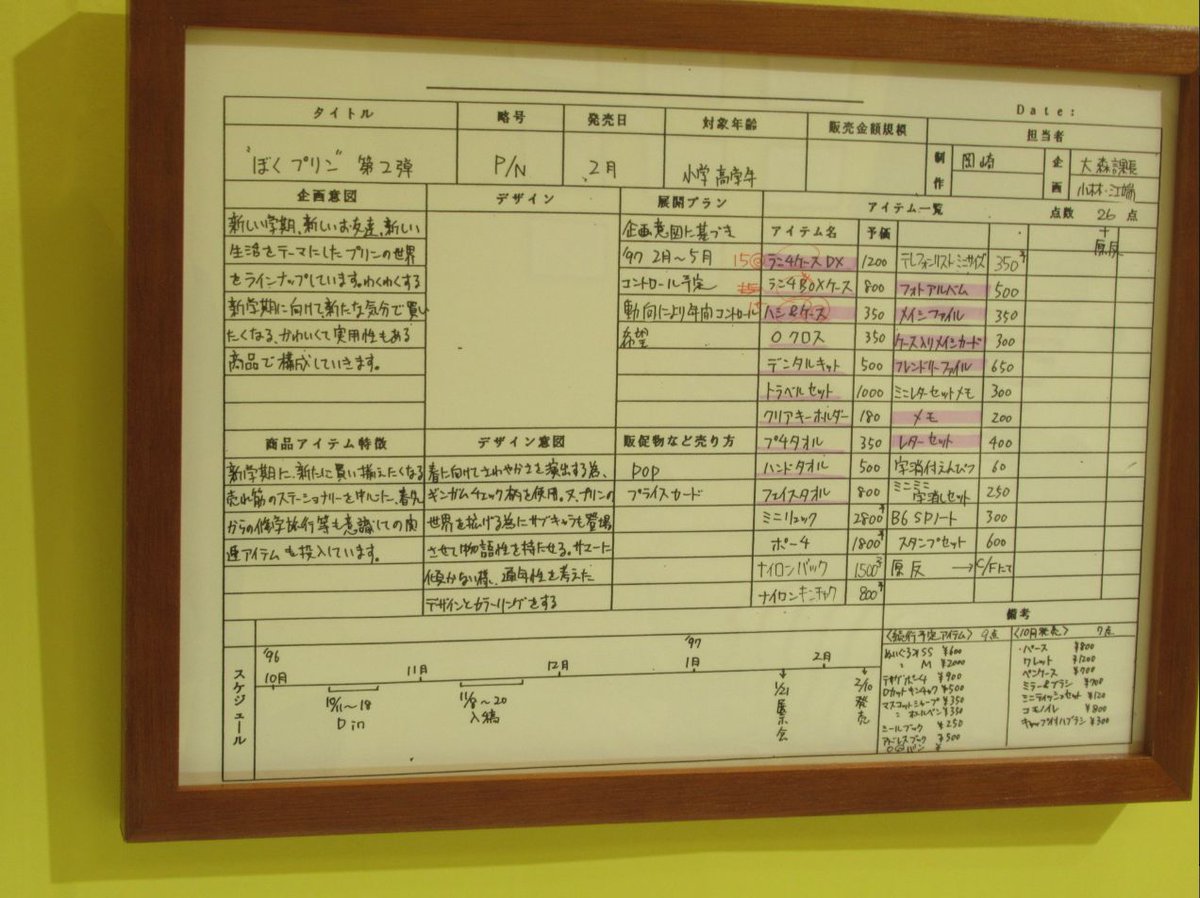 Date:
タイトル 略号 発売日 対象年齢 販売金額規模 担当者
"ぼくプリン" 第2弾 P/N 2月 小学高学年 制作 岡崎 企画 大森課長
小林・江端
企画意図
新しい学期、新しいお友達、新しい
生活をテーマにしたプリンの世界
をラインナップしています。わくわくする
新学期に向けて新たな気分で買い
たくなる、かわいくて実用性もある
商品で構成していきます。
デザイン
展開プラン
企画意図に基づき
'97 2月〜5月
コントロール予定
動向により年間コントロール
希望
アイテム一覧 点数 26点
+
原反
アイテム名 予価
15 ラニ4ケースDX 1200
ラニ4BOXケース 800
ハシ&ケース 350
Oクロス 350
デンタルキット 500
トラベルセット 1000
クリアキーホルダー 180
プチタオル 350
ハンドタオル 500
フェイスタオル 800
ミニリュック 2800
ポーチ 1800
ナイロンバック 1500
ナイロンキンチャク 800
テレフォンリストミニサイズ 350
フォトアルバム 500
メイシファイル 350
ケース入りメイシカード 300
フレンドリーファイル 650
ミニレターセットメモ 300
メモ 200
レターセット 400
字消付えんぴつ 60
ミニミニ字消しセット 250
B6 SPノート 300
スタンプセット 600
原反 → C/Fにて
商品アイテム特徴
新学期に、新たに買い揃えたくなる
売れ筋のステーショナリーを中心に、春久
からの修学旅行等も意識しての関
連アイテムも投入しています。
デザイン意図
春に向けてさわやかさを演出する為、
ギンガムチェック柄を使用。又、プリンの
世界を拡げる為にサブキャラも登場
させて物語性を持たせる。サマーに
傾かない様、通年性を考えた
デザインとカラーリングをする
販促物など売り方
POP
プライスカード
スケジュール
'96 '97
10月 11月 12月 1月 2月
10/11〜18
D in
11/8〜20
入稿
1/21 展示会
2/10 発売
備考
〈続行予定アイテム〉 9点
ぬいぐるみSS ¥600
〃 M ¥2000
¥900
Dカットキンチャック ¥500
マスコットシャープ ¥350
〃 ボールペン ¥350
シールブック ¥250
アドレスブック ¥500
〈10月発売〉 7点
・パース ¥800
ワレット ¥1200
ペンケース ¥700
ミラー&ブラシ ¥700
ミニティッシュセット ¥120
コモノイレ ¥800
キャップ付ハブラシ ¥300